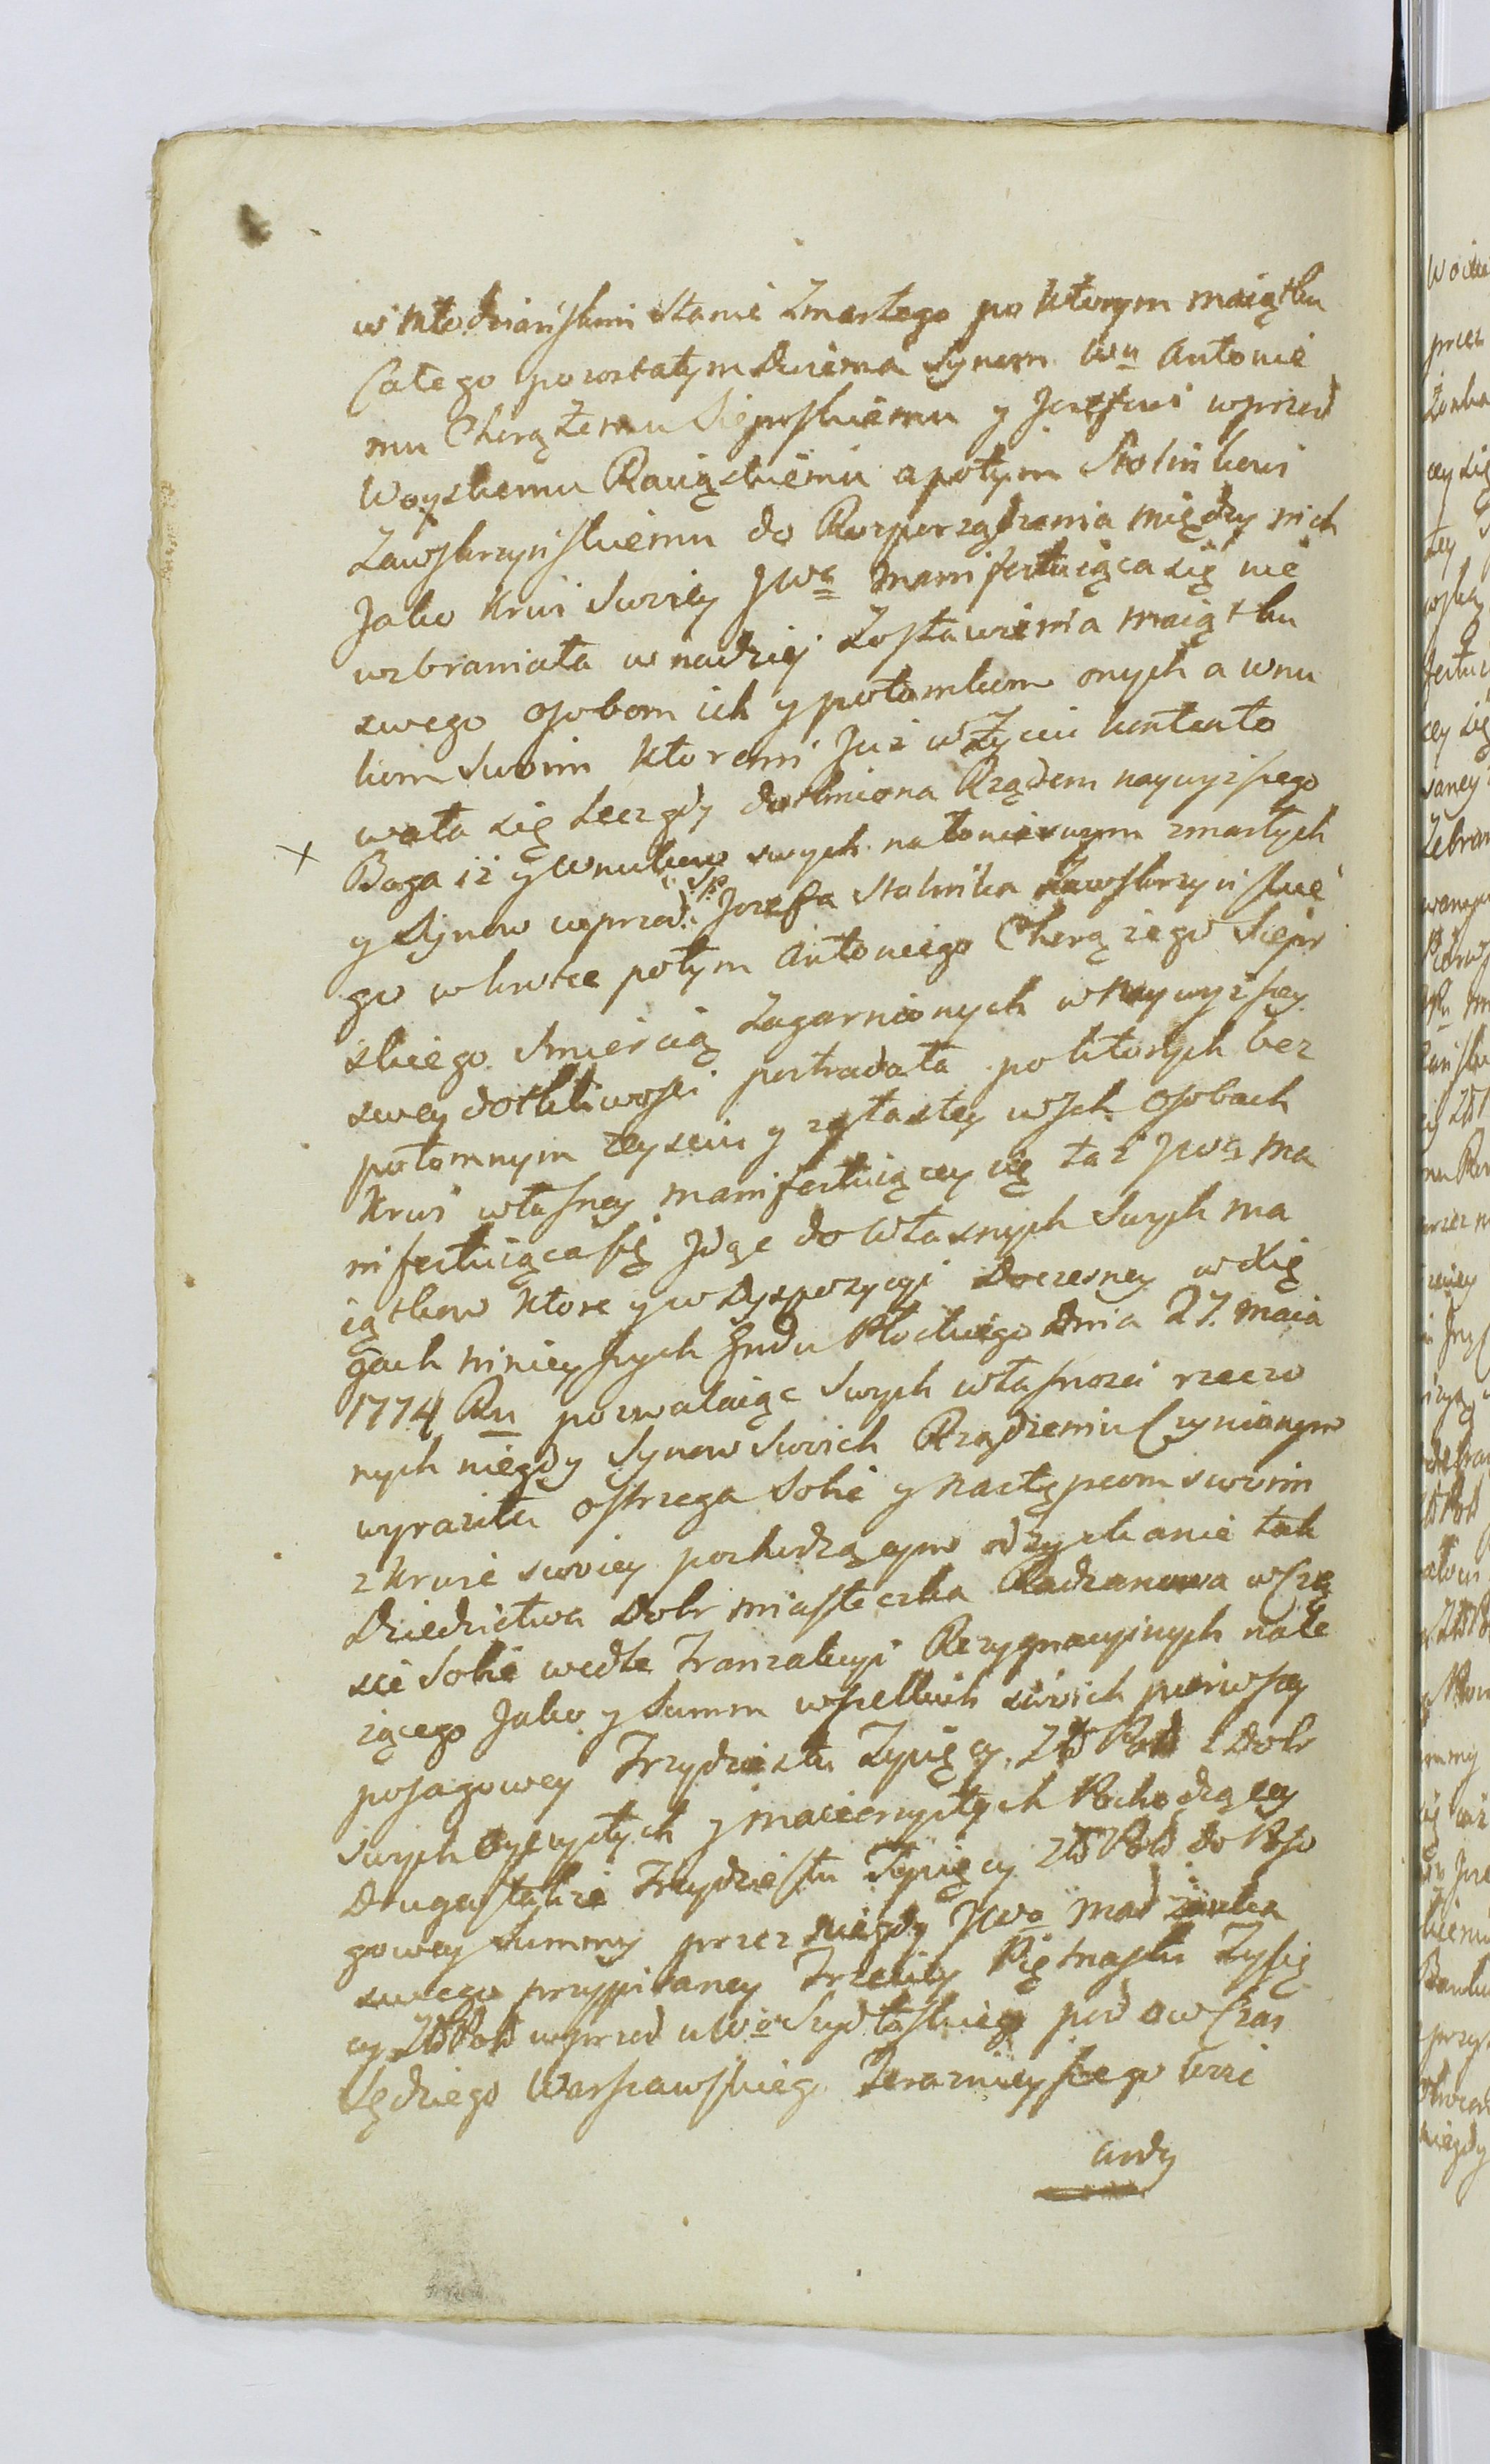 w Młodziańskim stanie Zmarłego po ktorym maiątku
Całego pozostałym dwiema Synom Wu Antonie
mu Chorążemu Sierpskiemu y Jozefowi wprzod
Woyskemu Raciąskiemu a potym Stolnikowi
Zawskrzyńskiemu do Rozporządzenia między nich
Jako krwi swoiey JWa manifestuiąca się nie
wzbraniała w nadziei Zostawienia maiątku
swego osobom ich y potomkom onych a wnu
kom swoim ktoremi Już w Życiu kontento
wała się Lecz gdy dotkniona Rządem naywyższego
Boga iż y wnukow swych na łonie zmarłych
y Synow wprzod SP Jozefa Stolnika Zawskrzyńskie
go wkrotce potym Antoniego Chorążego Sierp
skiego Smiercią Zagarnionych w Naywyższey
swey dotkliwosci postradała po ktorych bez
potomnym Zeysciu y zgłastey w Jch osobach
Krwi własney manifestuiącey się taż JWa ma
nifestuiąca się Jdąc do Własnych swych ma
iątkow ktore y w dyspozycyi doczesney w Xię
gach ninieyszych Grodu Płockiego dnia 27. maia
1774 Ru pozwalaiąc swych własnosci rzeczo
nych niegdy Synow swoich Rządzeniu Czynionym
wyraziła ostrzega sobie y następcom swoim
z krwie swoiey pochodzącym odzyskanie tak
Dziedzictwa Dobr miasteczka Radzanowa w Czę
sci sobie wedle Tranzakcyi Rezygnacyinych nale
żącego Jako y Summ wszelkich swoich pierwszey
posagowey Trzydziestu Tysięcy Zł Pol z Dobr
swych Oyczystych y macierzystych Pochodzącey
Drugiey także Trzydziestu Tysięcy Zł Pol do Posa
gowey Summy przez niegdy JWo małżonka
swego przypisaney Trzeciey Piętnastu Tysię
cy Zł Pol wprzod u Wo Szydłowskiego pod ow Czas
Sędziego Warszawskiego Terazniejszego Woie
wody